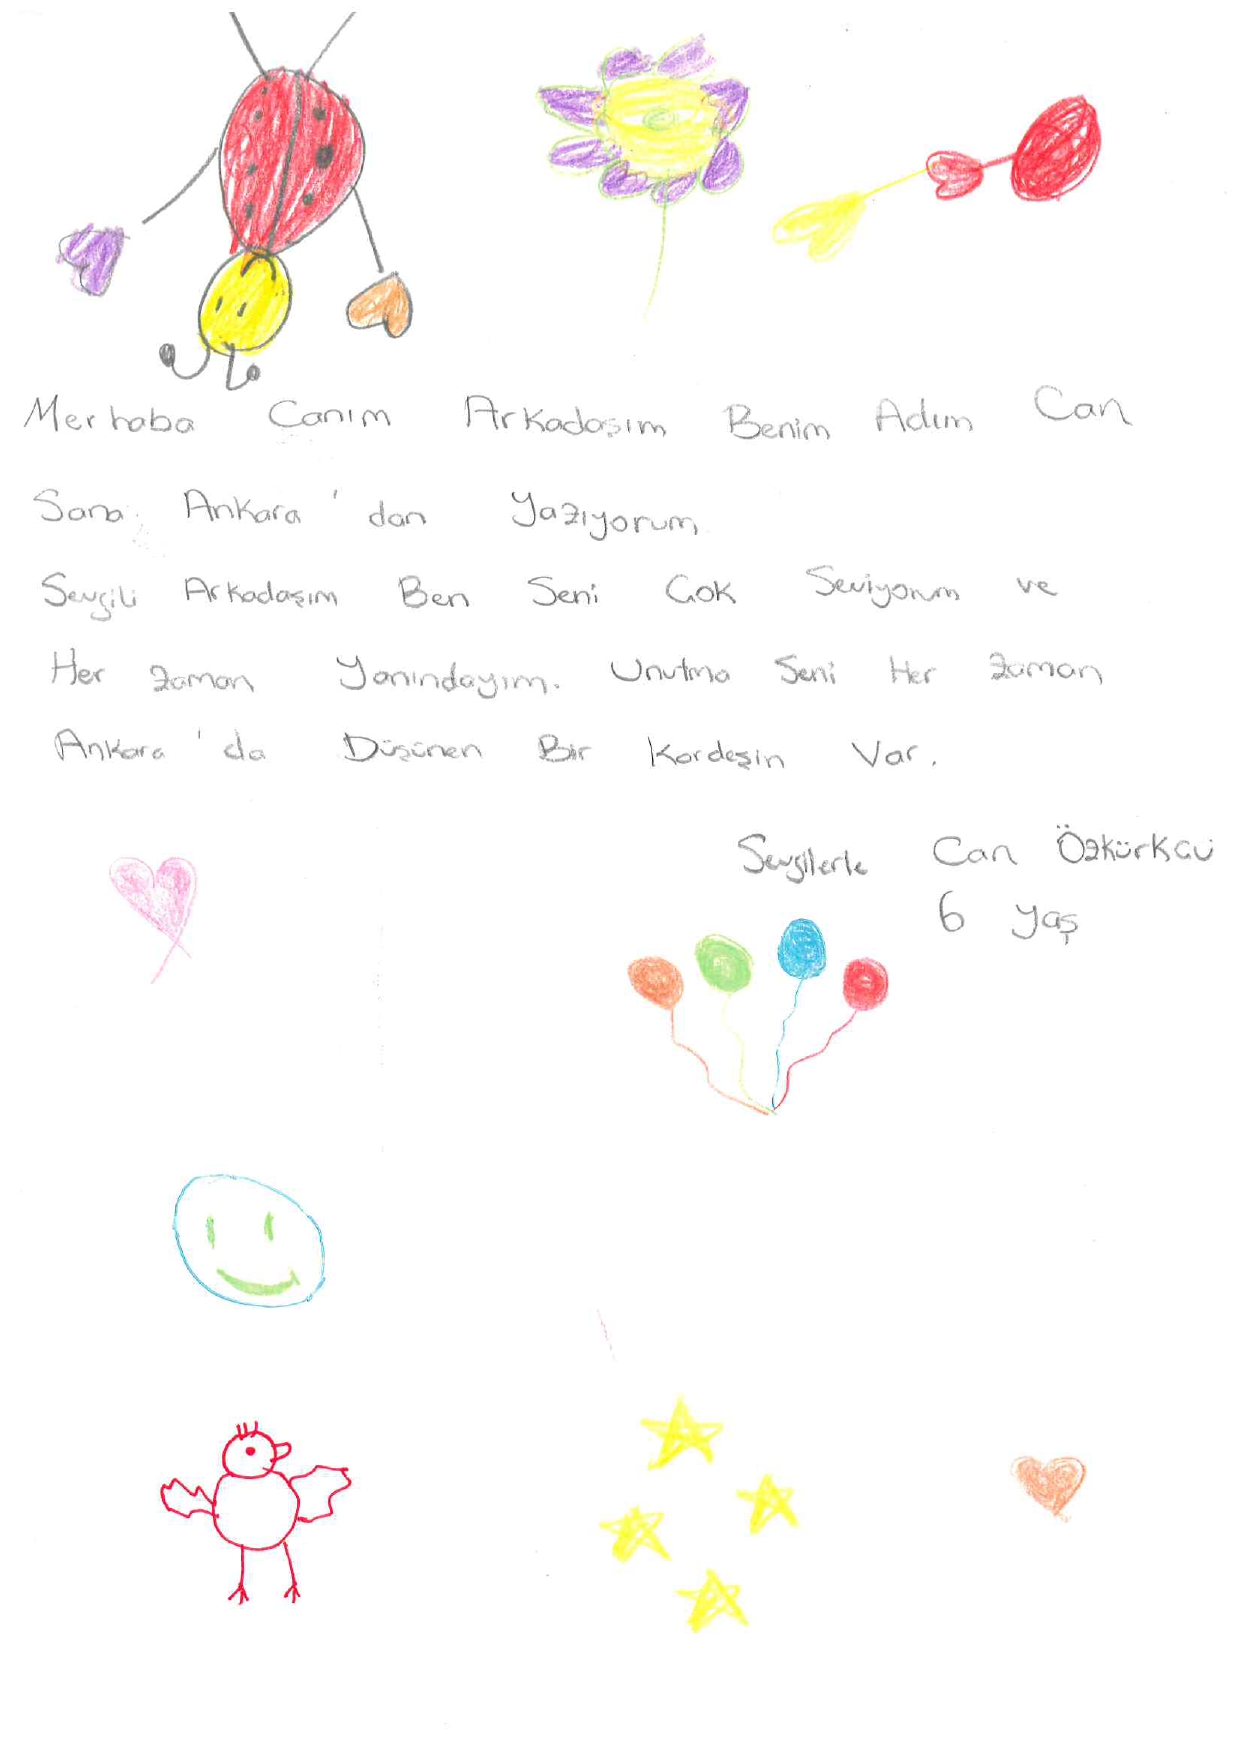 Merhaba Canım Arkadaşım Benim Adım Can
Sana Ankara'dan Yazıyorum
Sevgili Arkadaşım Ben Seni Çok Seviyorum ve
Her zaman Yanındayım. Unutma Seni Her zaman
Ankara'da Düşünen Bir Kardeşin Var.
Sevgilerle Can Özkürkcü
6 yaş